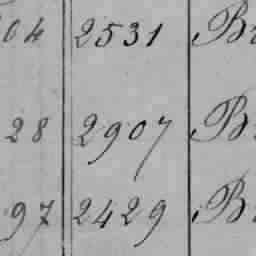 04 2531 Br
28 2907 Br
97 2429 Br